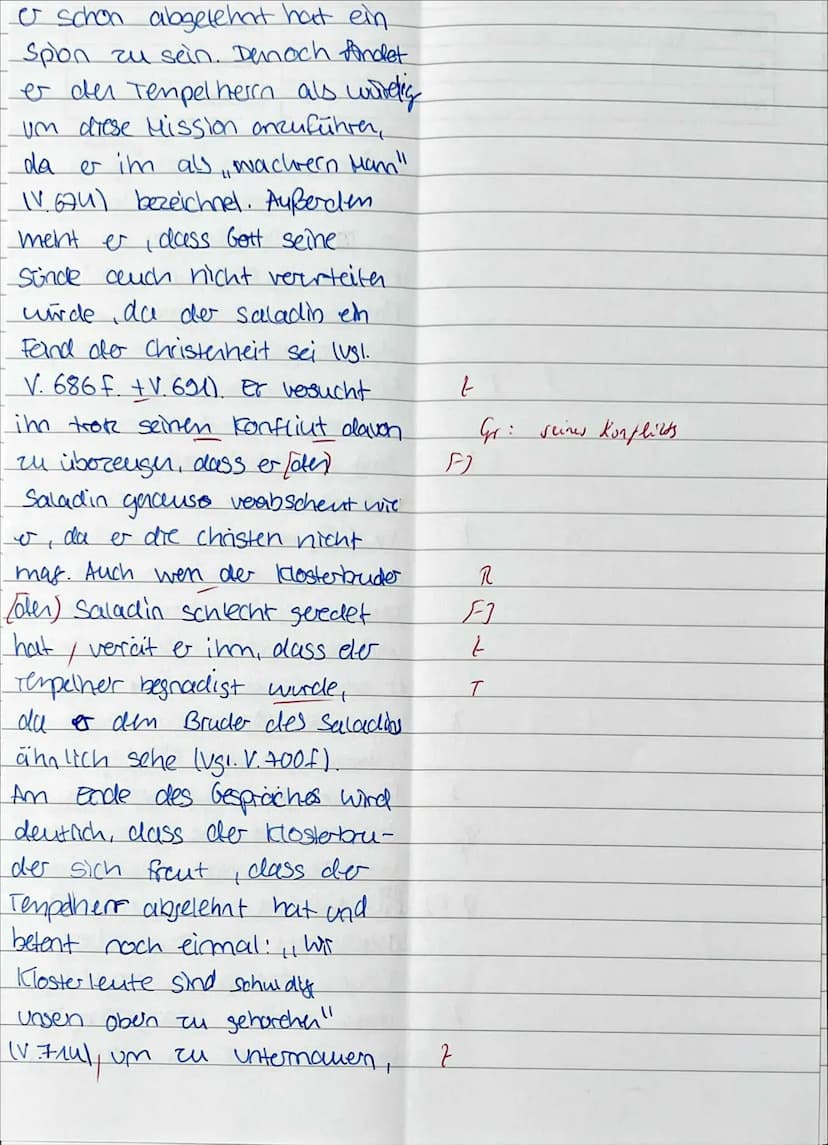 er schon abgelehnt hat ein
Spion zu sein. Dennoch findet
er den Tempelherrn als würdig
um diese Mission anzuführen,
da er im als „wackern Mann"
(V. 674) bezeichnet. Außerdem
meint er, dass Gott seine
Sünde auch nicht verurteilen
würde, da der Saladin ein
Feind der Christenheit sei (vgl.
V. 686 f. + V. 691). Er versucht Z
ihn trotz seinen Konflikt davon Gr: seines Konflikts
zu überzeugen, dass er [den] F]
Saladin genauso verabscheut wie
er, da er die Christen nicht
mag. Auch wen der Klosterbruder R
[den] Saladin schlecht geredet F]
hat, verrät er ihm, dass der Z
Tempelherr begnadigt wurde, T
da er dem Bruder des Saladins
ähnlich sehe (vgl. V. 700f).
Am Ende des Gespräches wird
deutlich, dass der Klosterbru-
der sich freut, dass der
Tempelherr abgelehnt hat und
betont noch einmal: „Wir
Klosterleute sind schuldig
unsern obern zu gehorchen"
(V 714), um zu untermauern, Z